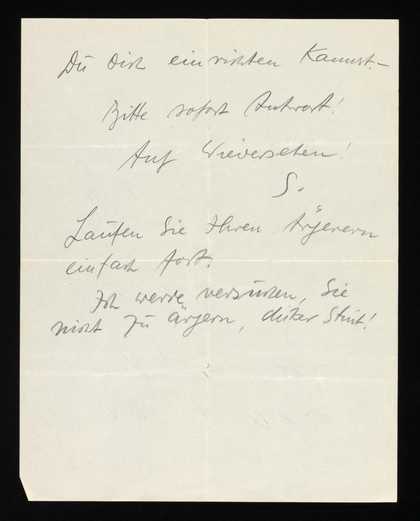 Du Dich einrichten kannst.–
Bitte sofort Antwort!
Auf Wiedersehen!
S.
Laufen Sie Ihren Ärgerern
einfach fort.
Ich werde versuchen, Sie
nicht zu ärgern, dicker